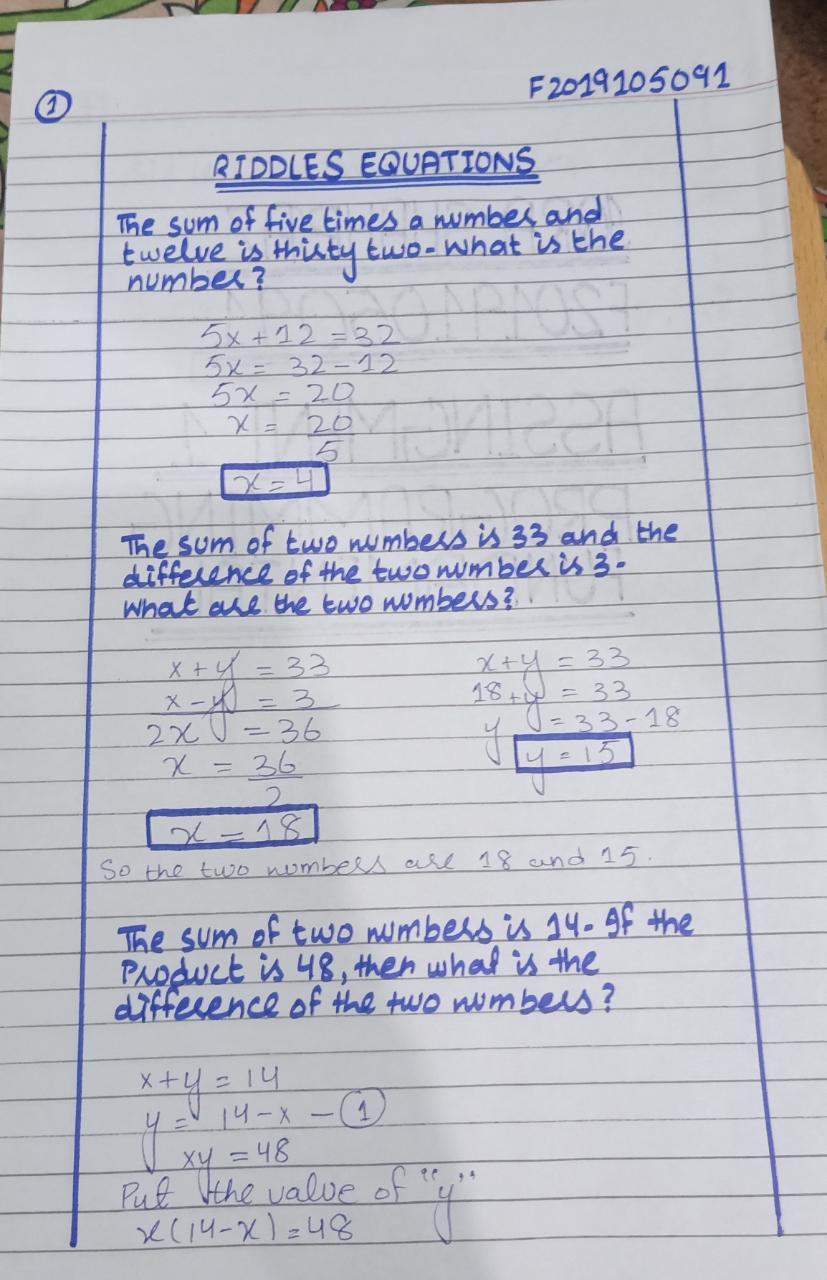 F2019105091
1
RIDDLES EQUATIONS
The sum of five times a number and
twelve is thirty two. What is the
number?
5x + 12 = 32
5x = 32 - 12
5x = 20
x = 20
5
x = 4
The sum of two numbers is 33 and the
difference of the two number is 3.
What are the two numbers?
x + y = 33
x - y = 3
2x = 36
x = 36
2
x = 18
x + y = 33
18 + y = 33
y = 33 - 18
y = 15
So the two numbers are 18 and 15.
The sum of two numbers is 14. If the
Product is 48, then what is the
difference of the two numbers?
x + y = 14
y = 14 - x - 1
xy = 48
Put the value of "y"
x(14-x) = 48